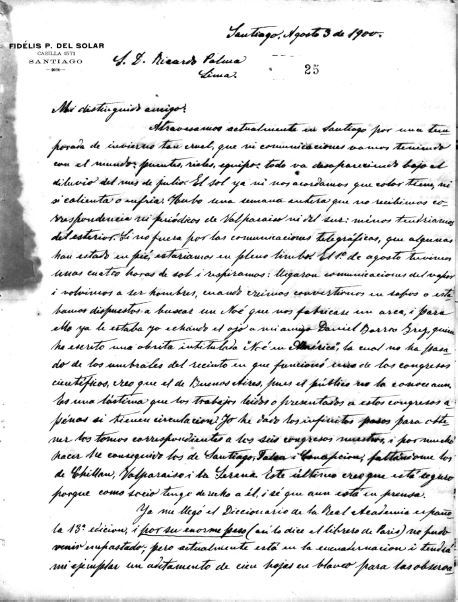 Santiago, Agosto 3 de 1900.
FIDÉLIS P. DEL SOLAR
CASILLA 2571
SANTIAGO
S. D. Ricardo Palma
Lima.
25
Mi distinguido amigo:
Atravesamos actualmente en Santiago por una tem
porada de invierno tan cruel, que ni comunicaciones vamos teniendo
con el mundo: puentes, rieles, equipo: todo va desapareciendo bajo el
diluvio del mes de julio. El sol ya ni nos acordamos que color tiene, ni
si calienta o enfria. Hubo una semana entera que no recibimos co-
rrespondencia ni periódicos de Valparaiso ni del sur: minos tendriamos
del esterior. Si no fuera por las comunicaciones telegráficas, que algunas
han estado en pié, estariamos en pleno limbo. El 1º de agosto tuvimos
unas cuatro horas de sol i respiramos: llegaron comunicaciones del vapor
i volvimos a ser hombres, cuando creimos convertirnos en sapos o está
bamos dispuestos a buscar un Noé que nos fabricase un arca, i para
ello ya le estaba yo echando el ojo a mi amigo Daniel Barros Grez, quien
ha escrito una obrita intitulada "Noé en América", la cual no ha pasa
do de los umbrales del recinto en que funcionó uno de los congresos
científicos, creo que el de Buenos Aires, pues el público no la conoce aun.
Es una lástima que los trabajos leidos o presentados a estos congresos a
pénas si tienen circulacion. Yo he dado los infinitos pasos para obte
ner los tomos correspondientes a los seis congresos nuestros, i por mucho
hacer he conseguido los de Santiago, Talca i Concepcion, faltándome los
de Chillan, Valparaiso i la Serena. Este último creo que está seguro
porque como socio tengo derecho a él, i sé que aun está en prensa.
Ya me llegó el Diccionario de la Real Academia espano
la 13ª edicion, i por su enorme peso (así lo dice el librero de Paris) no pudo
venir empastado; pero actualmente está en la encuadernacion i tendrá
mi ejemplar un aditamento de cien hojas en blanco para las observa